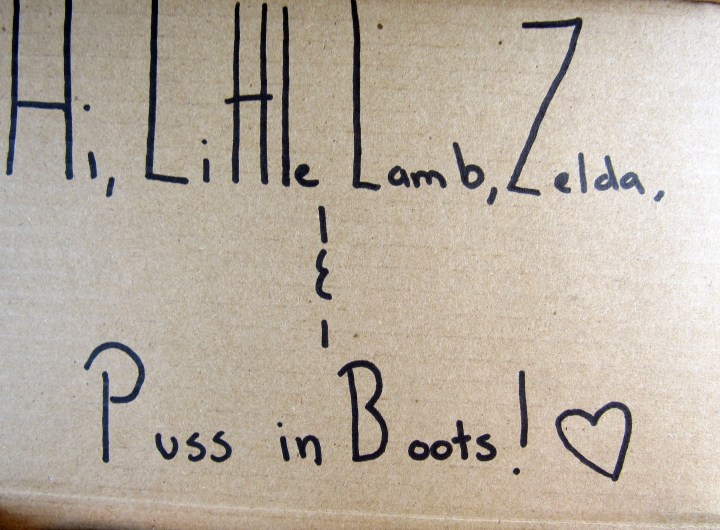 Hi, Little Lamb, Zelda,
&
Puss in Boots! ♡